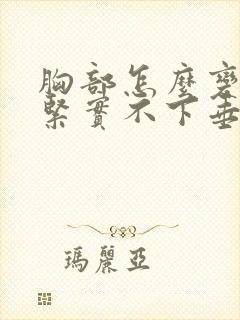 胸部怎麼變
緊實不下垂
瑪麗亞